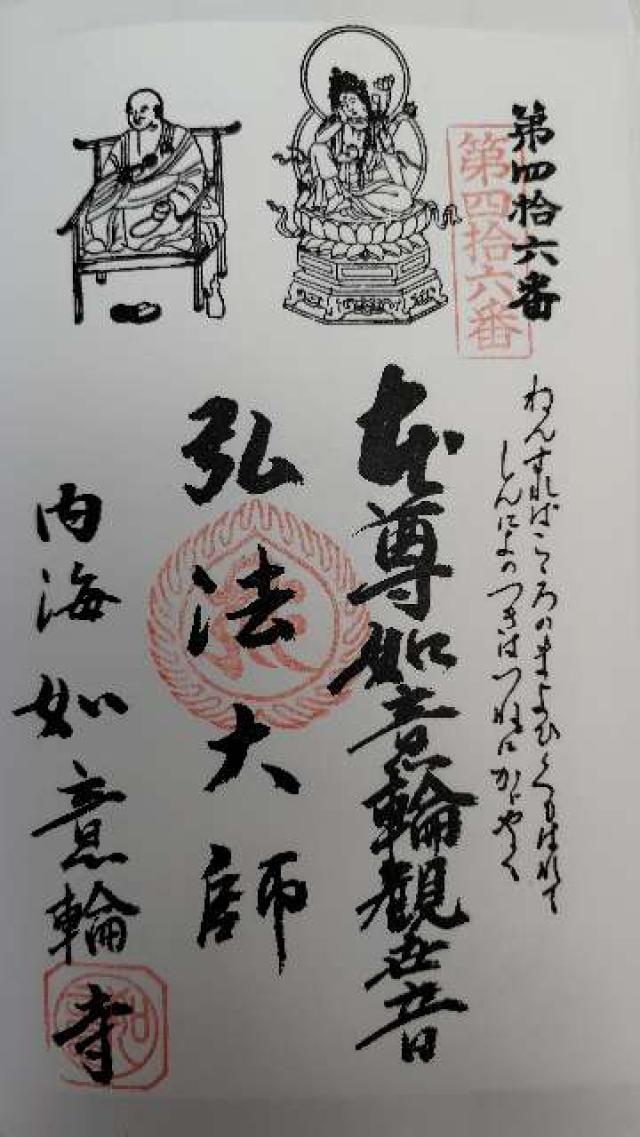 第四拾六番
第四拾六番
ねんすればこころのまよひくもはれて
しんによのつきはつねにかがやく
本尊如意輪観世音
弘法大師
内海如意輪寺